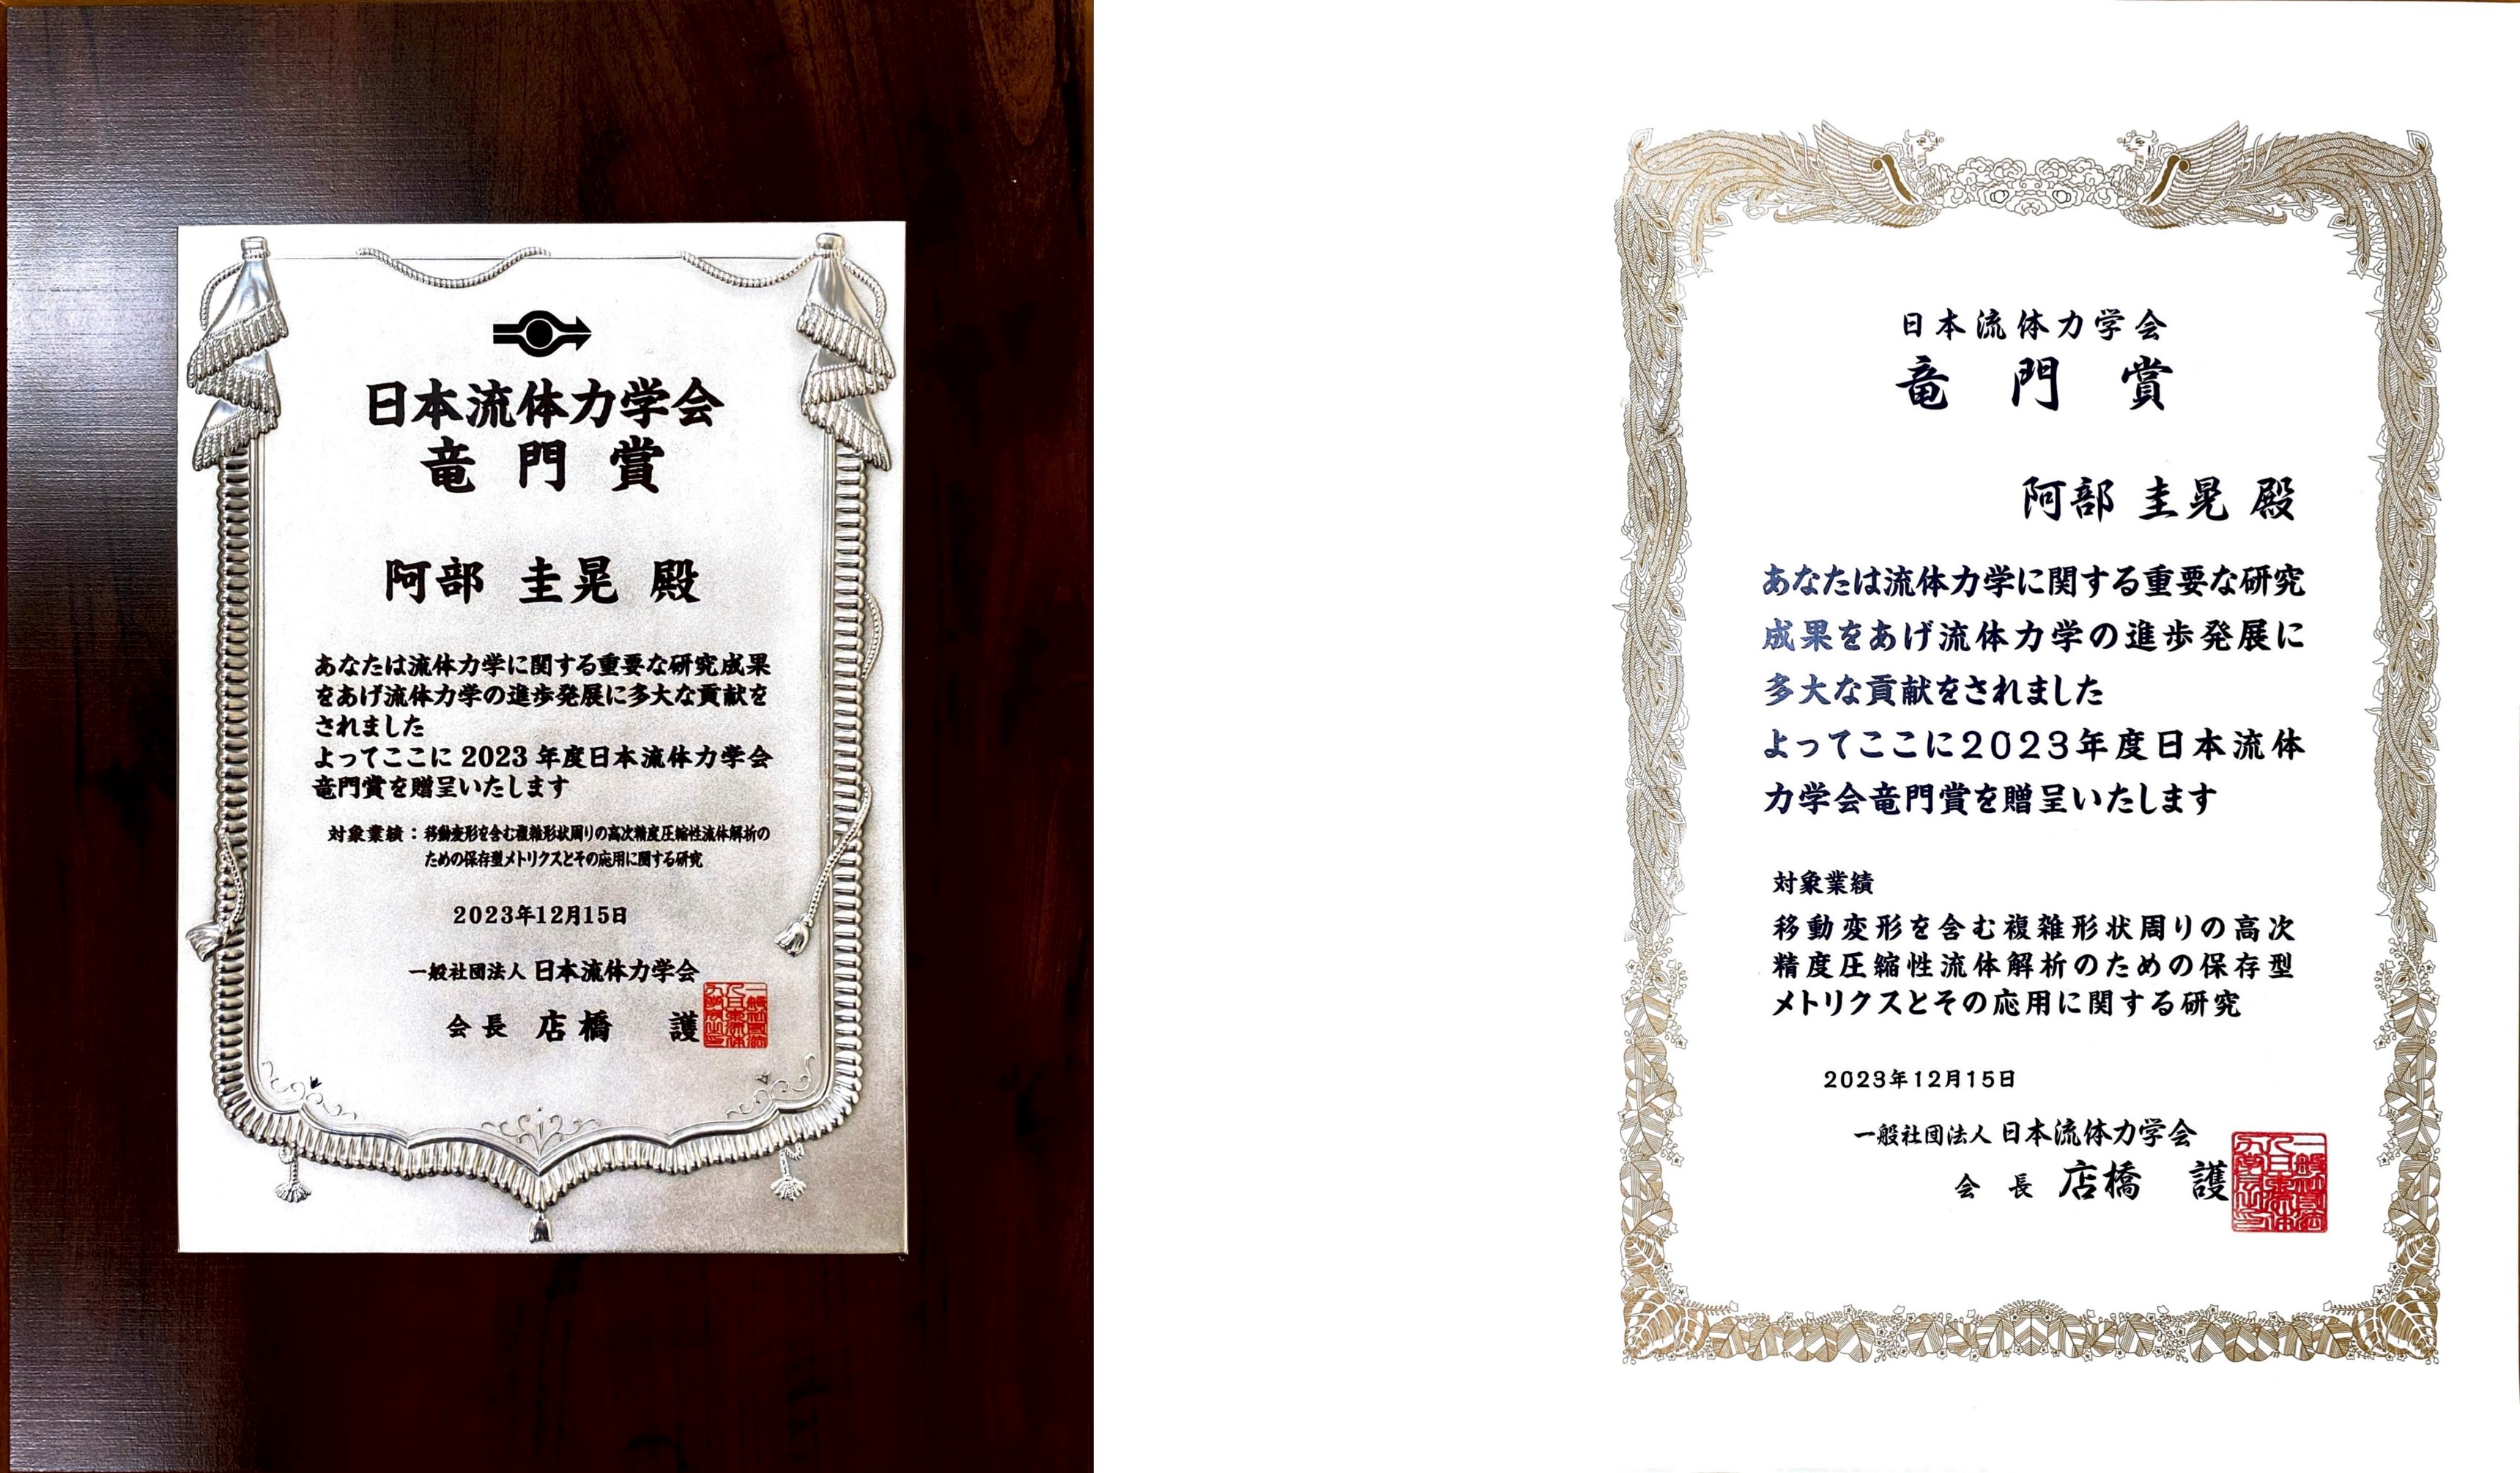 日本流体力学会
竜門賞
阿部 圭晃 殿
あなたは流体力学に関する重要な研究成果
をあげ流体力学の進歩発展に多大な貢献を
されました
よってここに 2023 年度日本流体力学会
竜門賞を贈呈いたします
対象業績：移動変形を含む複雑形状周りの高次精度圧縮性流体解析の
ための保存型メトリクスとその応用に関する研究
2023年12月15日
一般社団法人 日本流体力学会
会長 店橋 護
日本流体力学会
竜門賞
阿部 圭晃 殿
あなたは流体力学に関する重要な研究
成果をあげ流体力学の進歩発展に
多大な貢献をされました
よってここに2023年度日本流体
力学会竜門賞を贈呈いたします
対象業績
移動変形を含む複雑形状周りの高次
精度圧縮性流体解析のための保存型
メトリクスとその応用に関する研究
2023年12月15日
一般社団法人 日本流体力学会
会長 店橋 護